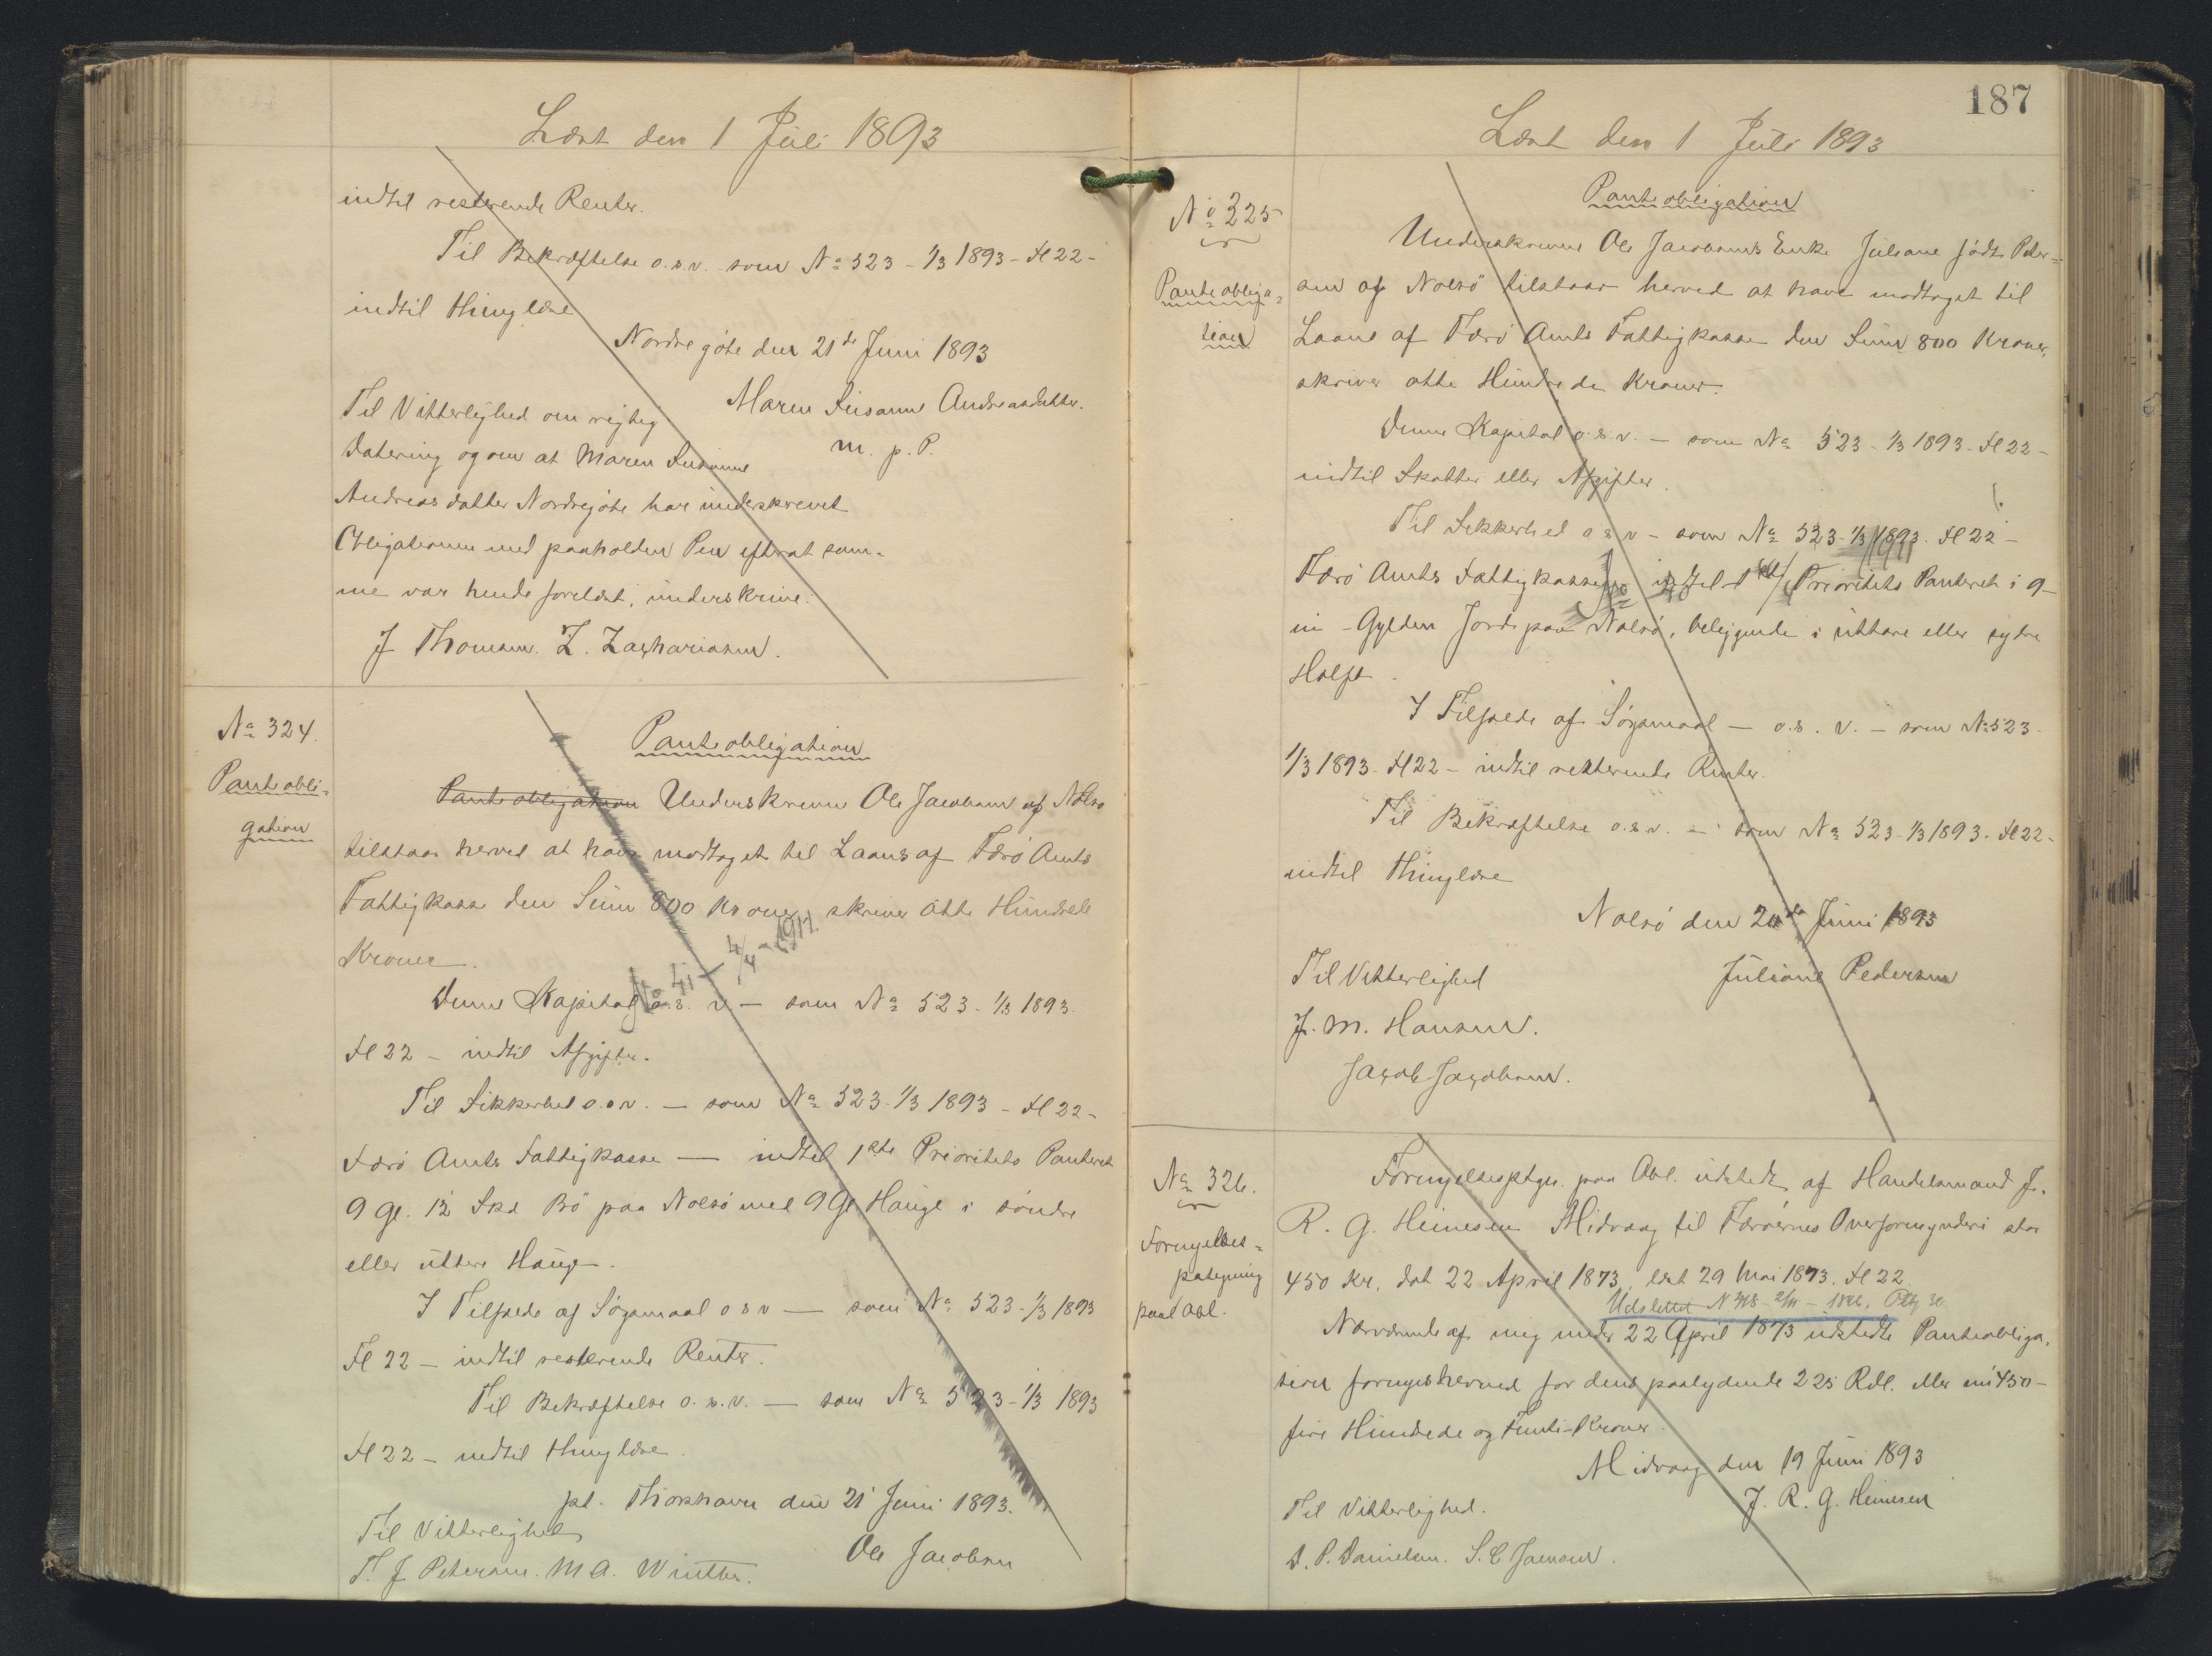 Læst den 1 Juli 1893
indtil resterende Renter.
Til Bekræftelse o.s.v. som No 523 - 1/3 1893 - Fl 22 -
indtil Thinglæse
Nordregöte den 21de Juni 1893
Maren Susanne Andreasdatter.
m. p. P.
Til Vitterlighed om rigtig
Datering og om at Maren Susanne
Andreasdatter Nordregöte har underskrevet
Obligationen med paaholden Pen efterat sam-
me var hende forelæst, underskrive:
J Thomsen. Z. Zachariasen.
No 324.
Panteobli-
gation
Panteobligation
Panteobligation Underskrevne Ole Jacobsen af Nolsö
tilstaar herved at have modtaget til Laans af Færö Amts
Fattigkasse den Sum 800 Kroner skriver Otte Hundrede
Kroner.
No 41 - 4/4 - 1911.
Denne Kapital o.s.v. — som No 523 - 1/3 1893.
Fl 22 - indtil Afgifter.
Til Sikkerhed o.s.v. — som No 523 - 1/3 1893 - Fl 22 -
Færö Amts Fattigkasse — indtil 1ste Prioritets Panteret
9 Gl. 12 Skd Bö paa Nolsö med 9 Gl Hauge i söndre
eller uttere Hauge.
I Tilfælde af Sögsmaal o s v — som No 523 - 1/3 1893
Fl 22 — indtil resterende Renter.
Til Bekræftelse o.s.v. — som No 523 - 1/3 1893
Fl 22 - indtil Thinglæse.
pt. Thorshavn den 21 Juni 1893.
Til Vitterlighed
Ole Jacobsen
T. J Petersen. M A. Winther.
187
Læst den 1 Juli 1893
No 325
Panteobliga-
tion
Panteobligation
Underskrevne Ole Jacobsens Enke Juliane födt Peter-
sen af Nolsö tilstaar herved at have modtaget til
Laans af Færö Amts Fattigkasse den Sum 800 Kroner,
skriver otte Hundrede Kroner.
Denne Kapital o.s.v. — som No 523 - 1/3 1893 - Fl 22 -
indtil Skatter eller Afgifter.
Til Sikkerhed o s v - som No 523 - 1/3 1893. Fl 22 -
Færö Amts Fattigkasse indtil 1ste Prioritets Panteret i 9-
ni - Gylden Jord paa Nolsö, beliggende i uttare eller sydre
Halft.
I Tilfælde af Sögsmaal — o.s.v. — som No 523.
1/3 1893 - Fl 22 - indtil resterende Renter.
Til Bekræftelse o.s.v. — som No 523 - 1/3 1893. Fl 22 -
indtil Thinglæse
Nolsö den 20de Juni 1893
Til Vitterlighed
Juliane Pedersen
J. M. Hansen.
Jacob Jacobsen.
No 326.
Fornyelses-
pategning
paa Obl.
Fornyelsesptgn. paa Obl. udstedt af Handelsmand J.
R. G. Heinesen Midvaag til Færöernes Overformynderi stor
450 Kr. dat 22 April 1873, læst 29 Mai 1873. Fl 22.
Udslettet N 318
Nærværende af mig under 22 April 1873 udstedte Panteobliga-
tion fornyes herved for dens paalydende 225 Rdl. eller nu 450 -
fire Hundrede og Femti - Kroner.
Midvaag den 19 Juni 1893
J. R. G. Heinesen
Til Vitterlighed.
D. P. Danielsen. S. C Jacobsen.